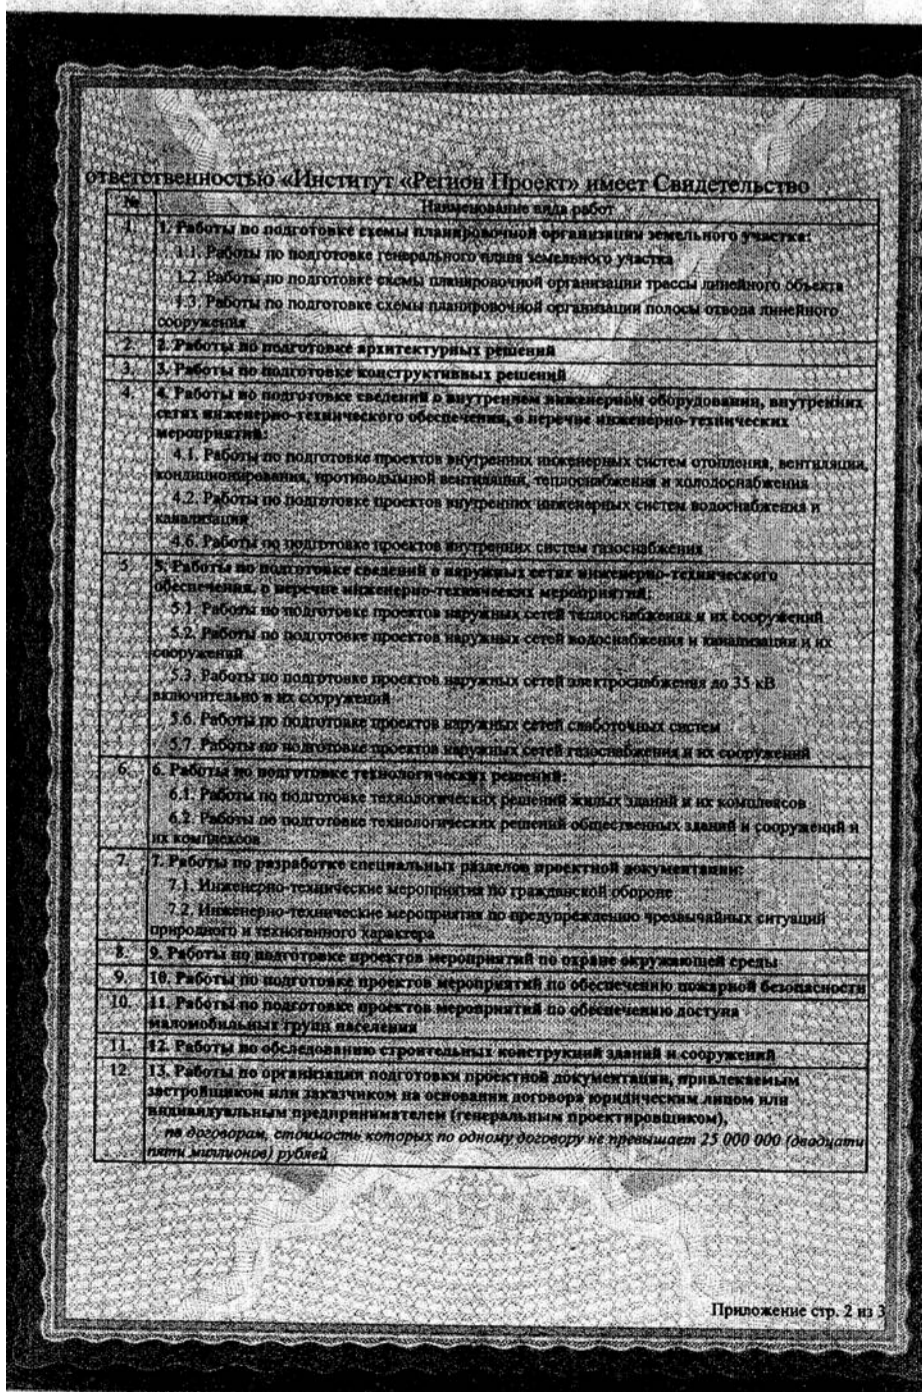 ответственностью «Институт «Регион Проект» имеет Свидетельство
№ Наименование вида работ
1. 1. Работы по подготовке схемы планировочной организации земельного участка:
1.1. Работы по подготовке генерального плана земельного участка
1.2. Работы по подготовке схемы планировочной организации трассы линейного объекта
1.3. Работы по подготовке схемы планировочной организации полосы отвода линейного
сооружения
2. 2. Работы по подготовке архитектурных решений
3. 3. Работы по подготовке конструктивных решений
4. 4. Работы по подготовке сведений о внутреннем инженерном оборудовании, внутренних
сетях инженерно-технического обеспечения, о перечне инженерно-технических
мероприятий:
4.1. Работы по подготовке проектов внутренних инженерных систем отопления, вентиляции,
кондиционирования, противодымной вентиляции, теплоснабжения и холодоснабжения
4.2. Работы по подготовке проектов внутренних инженерных систем водоснабжения и
канализации
4.6. Работы по подготовке проектов внутренних систем газоснабжения
5. 5. Работы по подготовке сведений о наружных сетях инженерно-технического
обеспечения, о перечне инженерно-технических мероприятий:
5.1. Работы по подготовке проектов наружных сетей теплоснабжения и их сооружений
5.2. Работы по подготовке проектов наружных сетей водоснабжения и канализации и их
сооружений
5.3. Работы по подготовке проектов наружных сетей электроснабжения до 35 кВ
включительно и их сооружений
5.6. Работы по подготовке проектов наружных сетей слаботочных систем
5.7. Работы по подготовке проектов наружных сетей газоснабжения и их сооружений
6. 6. Работы по подготовке технологических решений:
6.1. Работы по подготовке технологических решений жилых зданий и их комплексов
6.2. Работы по подготовке технологических решений общественных зданий и сооружений и
их комплексов
7. 7. Работы по разработке специальных разделов проектной документации:
7.1. Инженерно-технические мероприятия по гражданской обороне
7.2. Инженерно-технические мероприятия по предупреждению чрезвычайных ситуаций
природного и техногенного характера
8. 9. Работы по подготовке проектов мероприятий по охране окружающей среды
9. 10. Работы по подготовке проектов мероприятий по обеспечению пожарной безопасности
10. 11. Работы по подготовке проектов мероприятий по обеспечению доступа
маломобильных групп населения
11. 12. Работы по обследованию строительных конструкций зданий и сооружений
12. 13. Работы по организации подготовки проектной документации, привлекаемым
застройщиком или заказчиком на основании договора юридическим лицом или
индивидуальным предпринимателем (генеральным проектировщиком),
по договорам, стоимость которых по одному договору не превышает 25 000 000 (двадцати
пяти миллионов) рублей
Приложение стр. 2 из 3